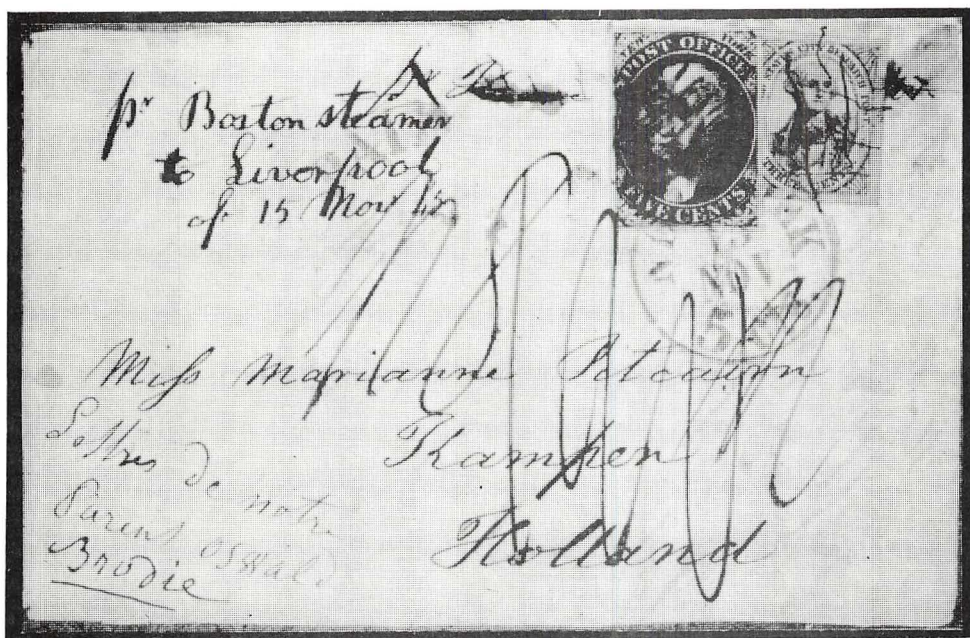 pr Boston steamer
to Liverpool
of 15 Nov
POST OFFICE
FIVE CENTS
THREE CENTS
NEW YORK
Miss Marianne Pitcairn
Kampen
Holland
Lettres de notre
Parent Oswald
Brodie